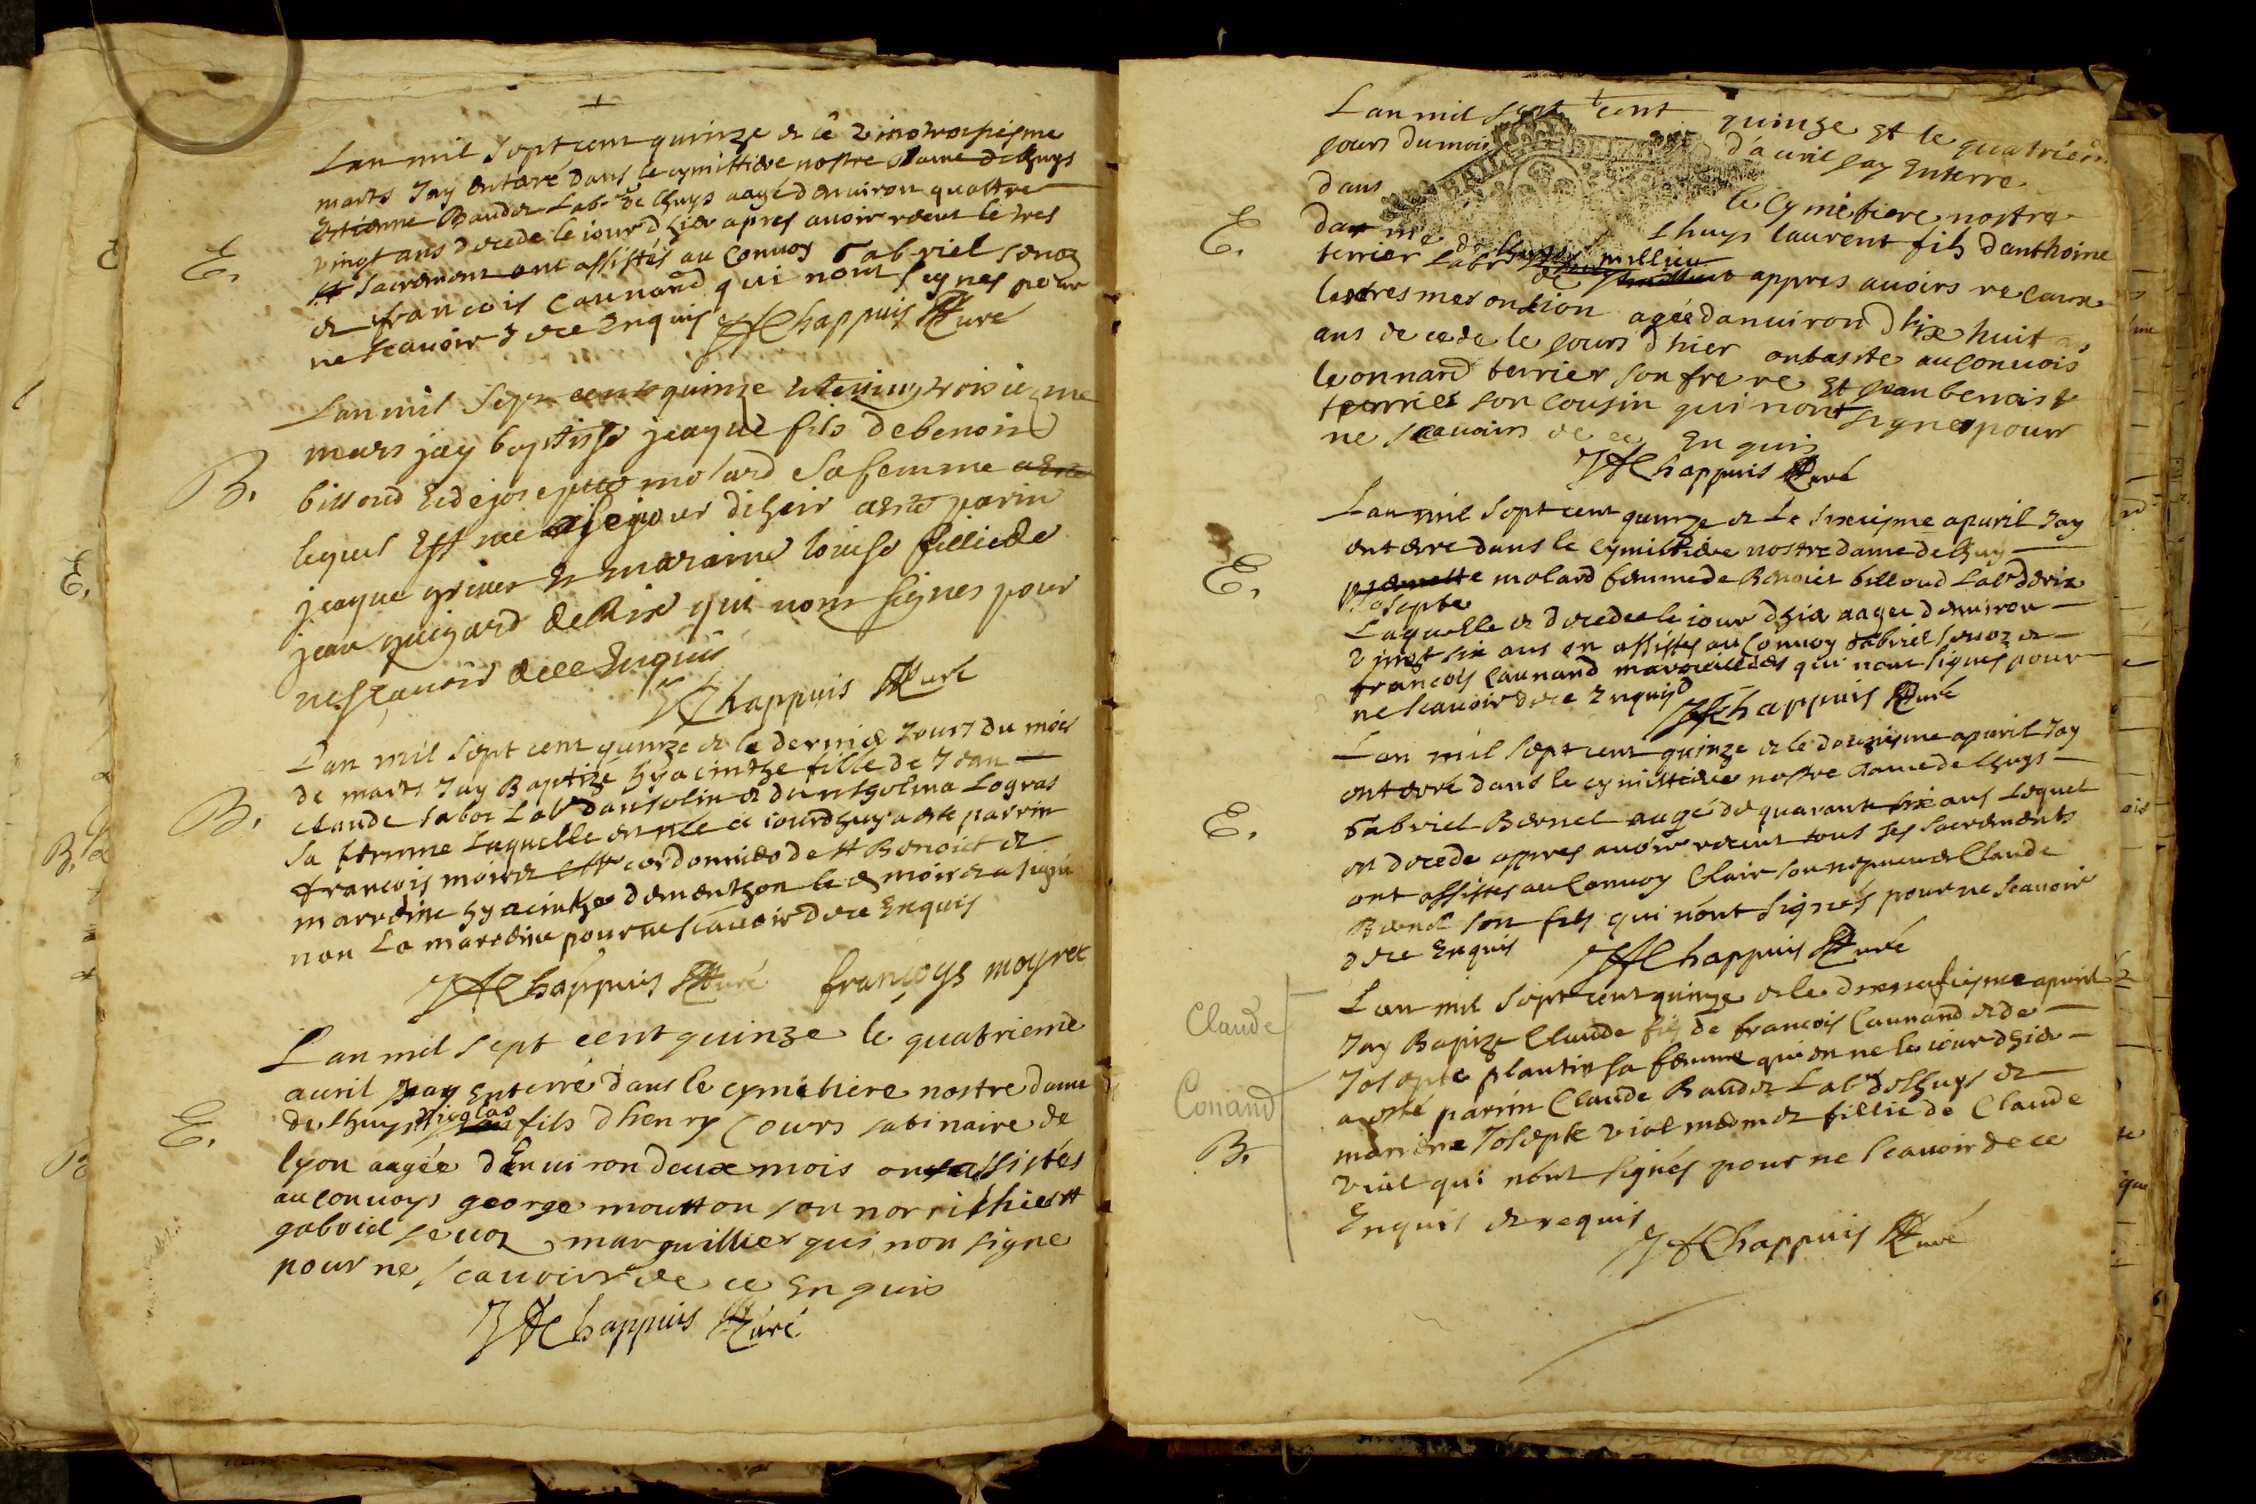 Lan mil sept cent quinze et le
marts Jay entéré dans le cymittiere nostre dame de lhuys
Estienne Baudet Lab.r de lhuys aagé denuiron quattre
vingt ans decede le iour d hier apres auoir receut le tres
st Sacrement ont assistés au Conuoy Gabriel senoz
et francois Caunand qui nont signes pour
ne scauoir de ce Enquis JHChappuis Curé
E.
Lan mil sept cent quinze et le vingt trois iesme
mars jay baptisse jeaque fils de benoit
billoud et de josepte molard sa femme
lequel est né le jour dheir parin
jeaque et maraine louise fillie de
jean guigard de Rix qui nont signes pour
ne scauoir de ce Enquis
B.
JHChappuis Curé
Lan mil sept cent quinze et le dernier Jours du mois
de marts Jay Baptizé hyacinthe fille de Jean
claude Labr dansolin et du
sa femme Laquelle est née ce iourdhuy a esté parrin
francois moiret cordonnier de st Benoict et
marreine hyacinthe de menthon le moiret a signé
non La marreine pour ne scauoir de ce Enquis
B.
JHChappuis Curé françoys moyret
Lan mil sept cent quinze le quatrieme
auril Jay Enterré dans le cymetiere nostre dame
de lhuys Nicolas fils dhenry Cours satinaire de
lyon aagée dEnuiron deux mois ont assistés
au conuoys george moutton son
gabriel seuoz marguillier qui non signe
pour ne scauoir de ce Enquis
E.
JHChappuis Curé
Lan mil sept cent quinze et le quatriem
jours du mois dauril jay Enterre
dans le Cymetiere nostre
dame de lhuys laurent fils danthoine
terrier Labr appres auoirs receu
lextresme onsion agée danuiron dix huit
ans decede le jours dhier au conuois
leonnard terrier son frere Et jean benoist
terrier son cousin qui nont signes pour
ne scauoirs de ce En quis
E.
JHChappuis Curé
Lan mil sept cent quinze et Le sixiesme apuril Jay
enterré dans le cymittiere nostre dame de lhuy
molard femme de Benoict billoud Labr de rix
Josepte
Laquelle et decedee le iour dhier aagee denuiron
vingt six ans on assistes au Conuoy Gabriel senoz et
francois Caunand marguilliers qui nont signes pour
ne scauoir de ce Enquis
E.
JHChappuis Curé
Lan mil sept cent quinze et le douziesme apuril Jay
enterré dans le cymittiere nostre dame de lhuys
Gabriel Bernel aagé de quarante six ans Lequel
et decede appres auoir receut tous ses sacrements
ont assistes au Conuoy Clair son nepueu et Claude
Bernel son fils qui nont signés pour ne scauoir
de ce Enquis JHChappuis Curé
E.
Lan mil sept cent quinze et le dixneufiesme apuril
Jay Bapize Claude fis de francois Caunand et de
Josepte plantin sa femme qui est ne le iour dhier
a esté parrin Claude Baudet Labr de lhuys et
marrine Josepte vial fillie de Claude
vial qui nont signés pour ne scauoir de ce
Enquis et requis
Claude
Conand
B.
JHChappuis Curé